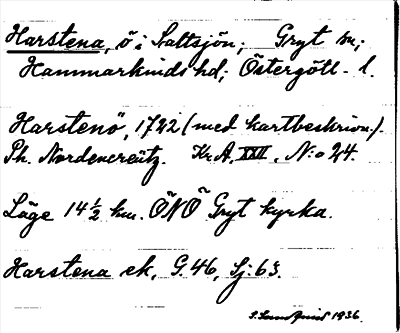 Harstena, ö i Saltsjön; Gryt sn;
Hammarkinds hd; Östergötl. l.
Harstenö, 1722 (med kartbeskrivn.).
Ph. Nordencreütz. Kr. A. XXVI, N:o 24.
Läge 14 ½ km. ÖNÖ Gryt kyrka.
Harstena ek, G. 46, Sj: 63.
S. Sundqvist 1936.